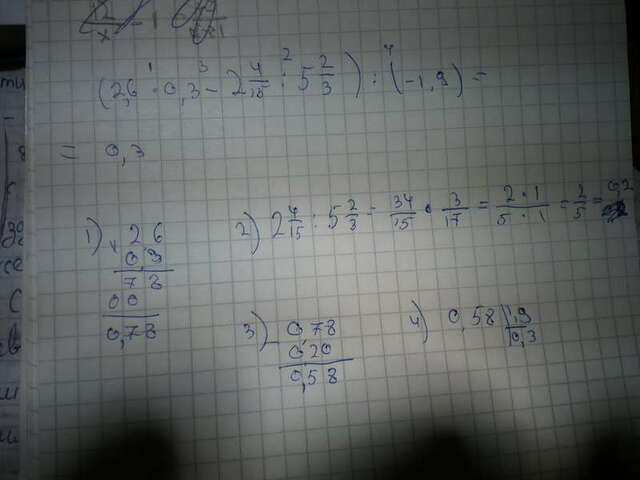 (2,6 · 0,3 - 2 4/15 : 5 2/3) : (-1,9) =
= 0,3
1) × 2 6
0,3
7 8
0 0
0,78
2) 2 4/15 : 5 2/3 = 34/15 · 3/17 = 2·1/5·1 = 2/5 = 0,2
3) - 0,78
0,20
0,58
4) 0,58 | 1,9
0,3